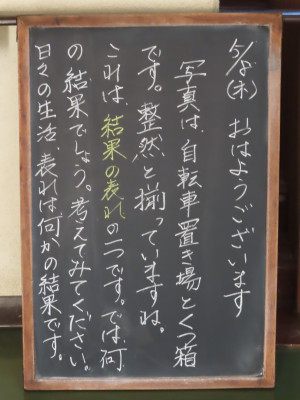 5/8(木) おはようございます
写真は、自転車置き場とくつ箱
です。整然と揃っていますね。
これは、結果の表れの一つです。では、何
の結果でしょう。考えてみてください。
日々の生活、表れは何かの結果です。